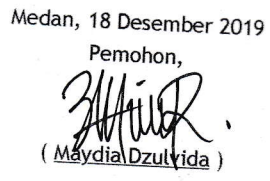 Medan, 18 Desember 2019
Pemohon,
( Maydia Dzulvida )